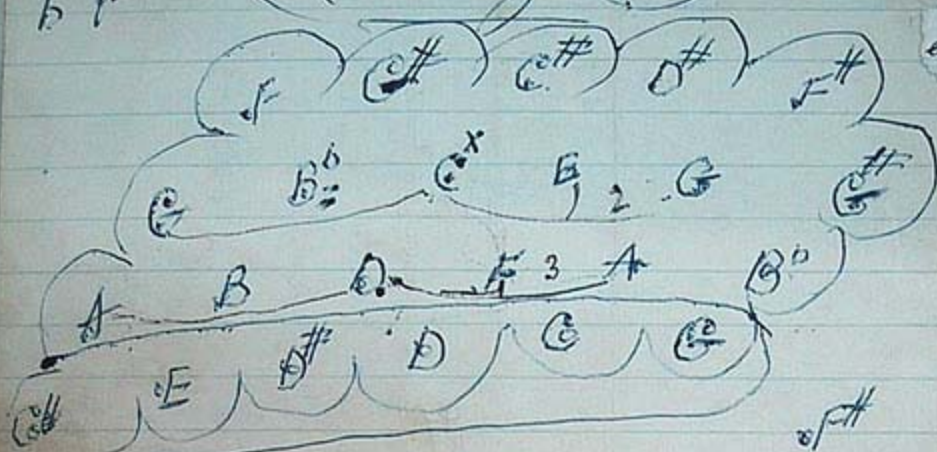 F C# C# D# F#
G Bb Cx E 2 G G#
A B D F 3 A Bb
C# E D# D C G
F#